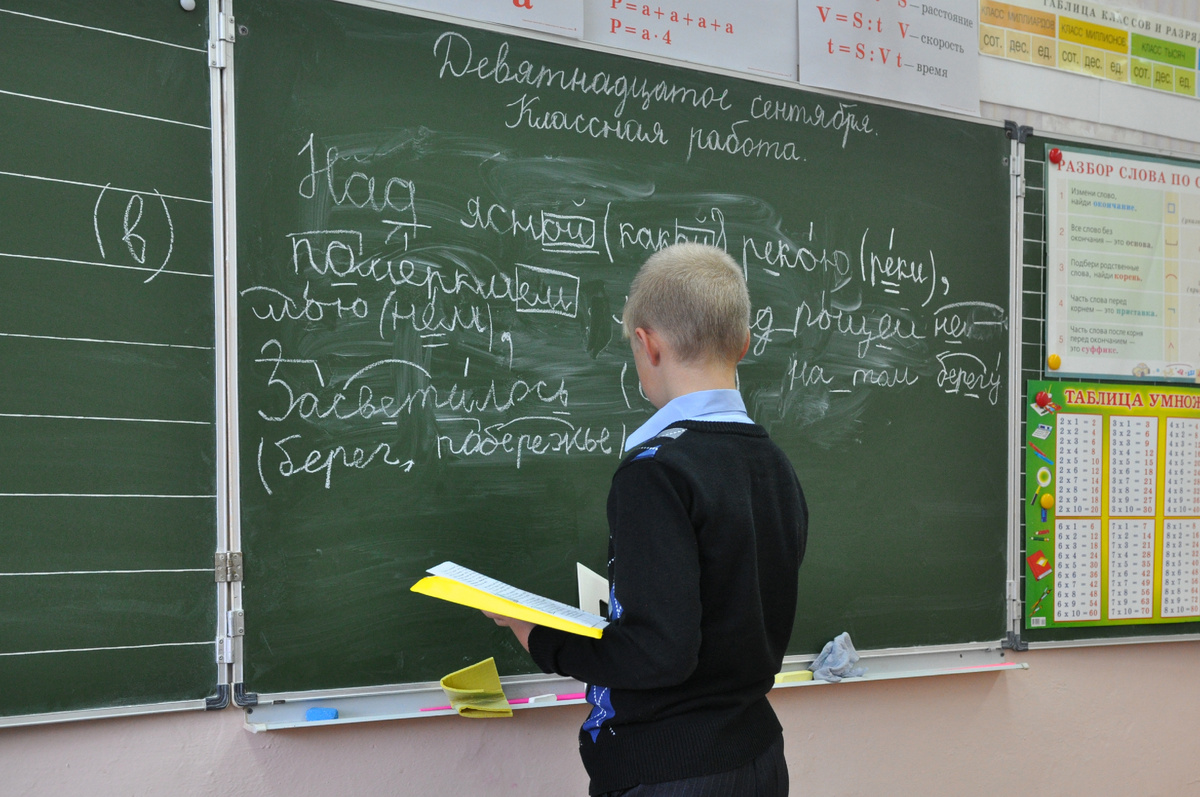 а
P = a + a + a + a
P = a · 4
S — расстояние
V = S : t V — скорость
t = S : V t — время
ТАБЛИЦА КЛАССОВ И
КЛАСС МИЛЛИАРДОВ КЛАСС МИЛЛИОНОВ КЛАСС ТЫСЯЧ
сот. дес. ед. сот. дес. ед. сот. дес. ед.
(в)
Девятнадцатое сентября.
Классная работа.
Над ясной (какой) рекою (реки),
померкшем
мою (нем), рощей не
Засветилось ( на том берегу
(берег, побережье)
РАЗБОР СЛОВА ПО
1 Измени слово,
найди окончание.
2 Все слово без
окончания — это основа.
3 Подбери родственные
слова, найди корень.
4 Часть слова перед
корнем — это приставка.
5 Часть слова после корня
перед окончанием —
это суффикс.
ТАБЛИЦА УМНОЖ
2 x 1 = 2 3 x 1 = 3
2 x 2 = 4 3 x 2 = 6
2 x 3 = 6 3 x 3 = 9
2 x 4 = 8 3 x 4 = 12
2 x 5 = 10 3 x 5 = 15
2 x 6 = 12 3 x 6 = 18
2 x 7 = 14 3 x 7 = 21
2 x 8 = 16 3 x 8 = 24
2 x 9 = 18 3 x 9 = 27
2 x 10 = 20 3 x 10 = 30
6 x 1 = 6 7 x 1 = 7 8 x 1 = 8
6 x 2 = 12 7 x 2 = 14
6 x 3 = 18 7 x 3 = 21
6 x 4 = 24 7 x 4 = 28
6 x 5 = 30 7 x 5 = 35
6 x 6 = 36 7 x 6 = 42
6 x 7 = 42 7 x 7 = 49
6 x 8 = 48 7 x 8 = 56
6 x 9 = 54 7 x 9 = 63
6 x 10 = 60 7 x 10 = 70